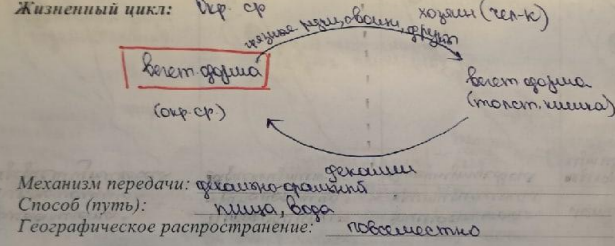 Жизненный цикл: Окр. ср хозяин (чел-к)
грязные руки, овощи, фрукты
вегет. форма
вегет форма
(окр. ср.)
(толст. кишка)
фекалии
Механизм передачи: фекально-оральный
Способ (путь): пища, вода
Географическое распространение: повсеместно